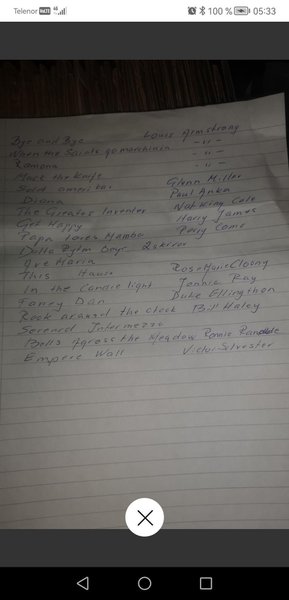 Telenor VoLTE 4G 100 % 05:33
Bye and Bye Louis Armstrong
When the Saints go marchinin - " -
Ramona - " -
Mack the Knife - " -
Sold amerika Glenn Miller
Diana Paul Anka
The Greates Inventer Nat King Cole
Get Happy Harry James
Papa Loves Mambo Perry Como
Dolls Boys 2 skiver
Ave Maria
This House Rose Marie Cloony
In the Candle light Jonnie Ray
Fancy Dan Duke Ellingthon
Rock around the clock Bill Haley
Serenad Intermezzo
Bells Across the Meadow Ronnie
Empere Wall Victor Silvester